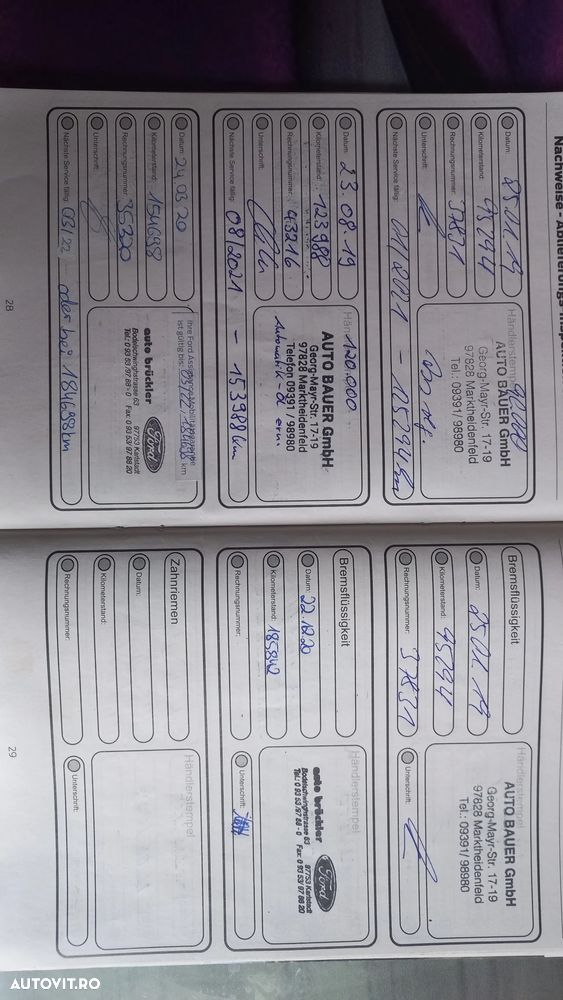 Nachweise - Ablieferungs-Insp
Datum: 25.01.19
Kilometerstand: 95294
Rechnungsnummer: 37831
Unterschrift:
Nächste Service fällig: 01/2021 - 125294 km
Händlerstempel
90.000
AUTO BAUER GmbH
Georg-Mayr-Str. 17-19
97828 Marktheidenfeld
Tel.: 09391/ 98980
Datum: 23.08.19
Kilometerstand: 123988
Rechnungsnummer: 43216
Unterschrift:
Nächste Service fällig: 08/2021 - 153988 km
120.000
AUTO BAUER GmbH
Georg-Mayr-Str. 17-19
97828 Marktheidenfeld
Telefon 09391 / 98980
Automatik-Öl ern.
Datum: 24.03.20
Kilometerstand: 154698
Rechnungsnummer: 35320
Unterschrift:
Nächste Service fällig: 03/22 oder bei 184698km
ist gültig bis: 03/22 / 184698 km
auto brückler
Bodelschwinghstrasse 63 97753 Karlstadt
Tel.: 0 93 53 / 97 88 - 0 Fax: 0 93 53/ 97 88 20
Ford
28
Bremsflüssigkeit
Datum: 25.01.19
Kilometerstand: 95294
Rechnungsnummer: 37831
Händlerstempel
AUTO BAUER GmbH
Georg-Mayr-Str. 17-19
97828 Marktheidenfeld
Tel.: 09391/ 98980
Unterschrift:
Bremsflüssigkeit
Datum: 22.12.20
Kilometerstand: 185842
Rechnungsnummer:
Händlerstempel
auto brückler
Bodelschwinghstrasse 63 97753 Karlstadt
Tel.: 0 93 53 /97 88 - 0 Fax: 0 93 53/ 97 88 20
Ford
Unterschrift:
Zahnriemen
Datum:
Kilometerstand:
Rechnungsnummer:
Händlerstempel
Unterschrift:
29
AUTOVIT.RO